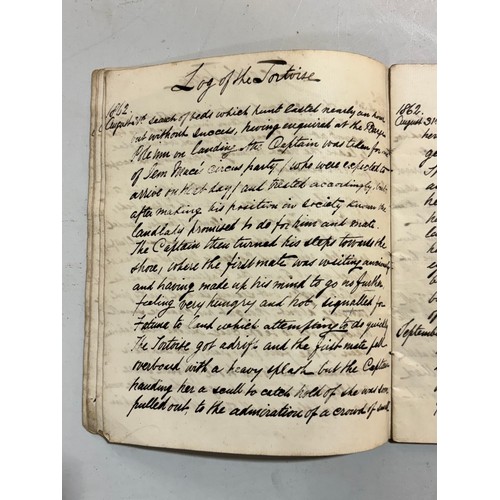 Log of the Tortoise
1862
August 31st search of beds which hunt lasted nearly an hour
but without success, having enquired at the Barge
Pole Inn on landing the Captain was taken for one
of Jem Mace's circus party / who were expected to
arrive on that day / and treated accordingly, but
after making his position in society known the
landlady promised to do for him and mate.
The Captain then turned his steps towards the
shore, where the first mate was waiting anxiously
and having made up his mind to go no further
feeling very hungry and hot, signalled for
to land which attempting to do quickly
The Tortoise got adrift and the first mate fell
overboard with a heavy splash but the Captain
handing her a scull to catch hold of she was soon
pulled out, to the admiration of a crowd of small
1862.
August 31st
her
ge
S
a
he
h
a
b
o
September